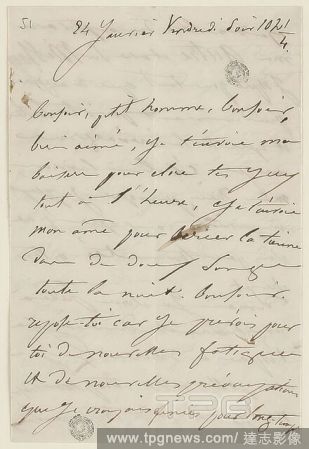 51
24 Janvier Vendredi soir 10h ¼
Bonsoir, p'tit homme, bonsoir,
bien aimé, je t'envoie ma
baiser pour clore tes yeux
tout à l'heure, je t'envoie
mon âme pour bercer la tienne
dans de doux songes
toute la nuit. Bonsoir.
repose-toi car je prévois pour
toi de nouvelles fatigues
et de nouvelles préoccupations
que je croyais finies pour longtemps
TPG
www.tpgnews.com/達志影像